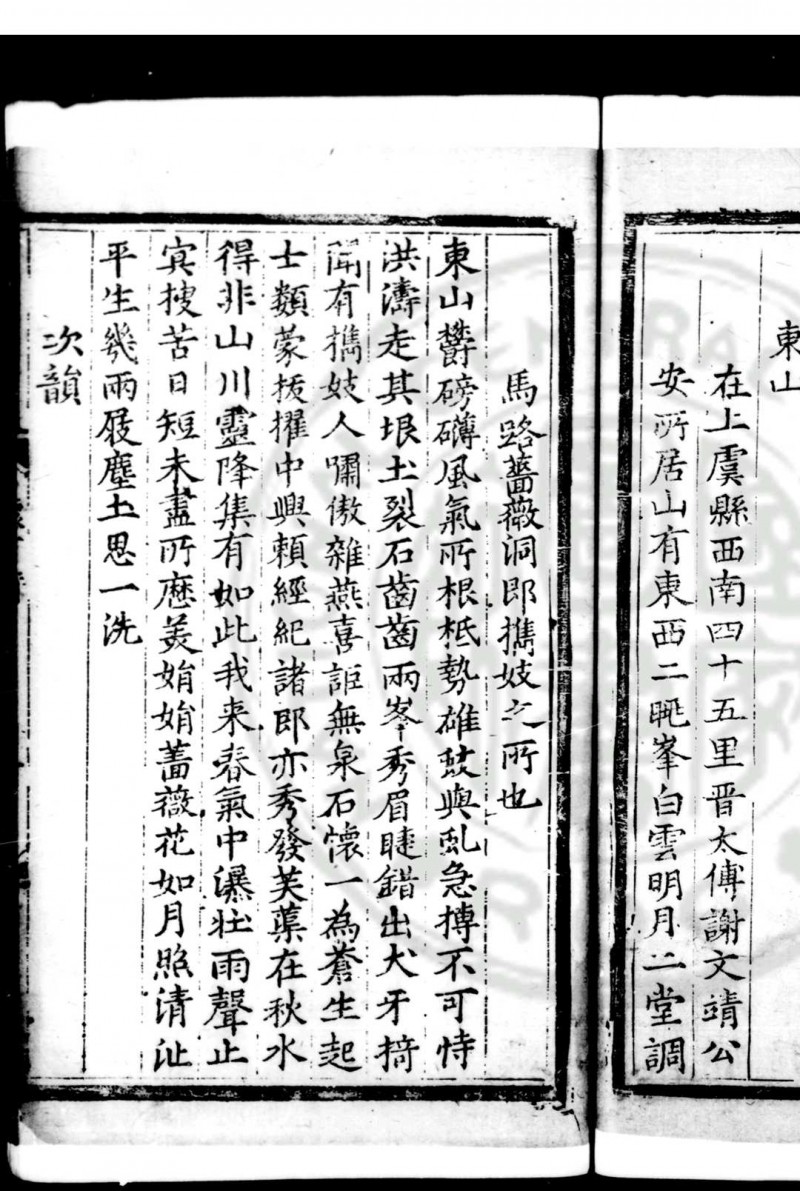 東山
在上虞縣西南四十五里晋太傅謝文靖公
安所居山有東西二眺峯白雲明月二堂調
馬路薔薇洞即携妓之所也
東山欝磅礴風氣所根柢勢雄蛟與虬急搏不可恃
洪濤走其垠土裂石齒齒兩峯秀眉睫錯出犬牙掎
聞有携妓人嘯傲雜燕喜詎無泉石懷一為蒼生起
士類蒙拔擢中興賴經紀諸郎亦秀發芙蕖在秋水
得非山川靈降集有如此我来春氣中瀑壮雨聲止
冥搜苦日短未盡所歴美娟娟薔薇花如月照清沚
平生幾兩屐塵土思一洗
次韻